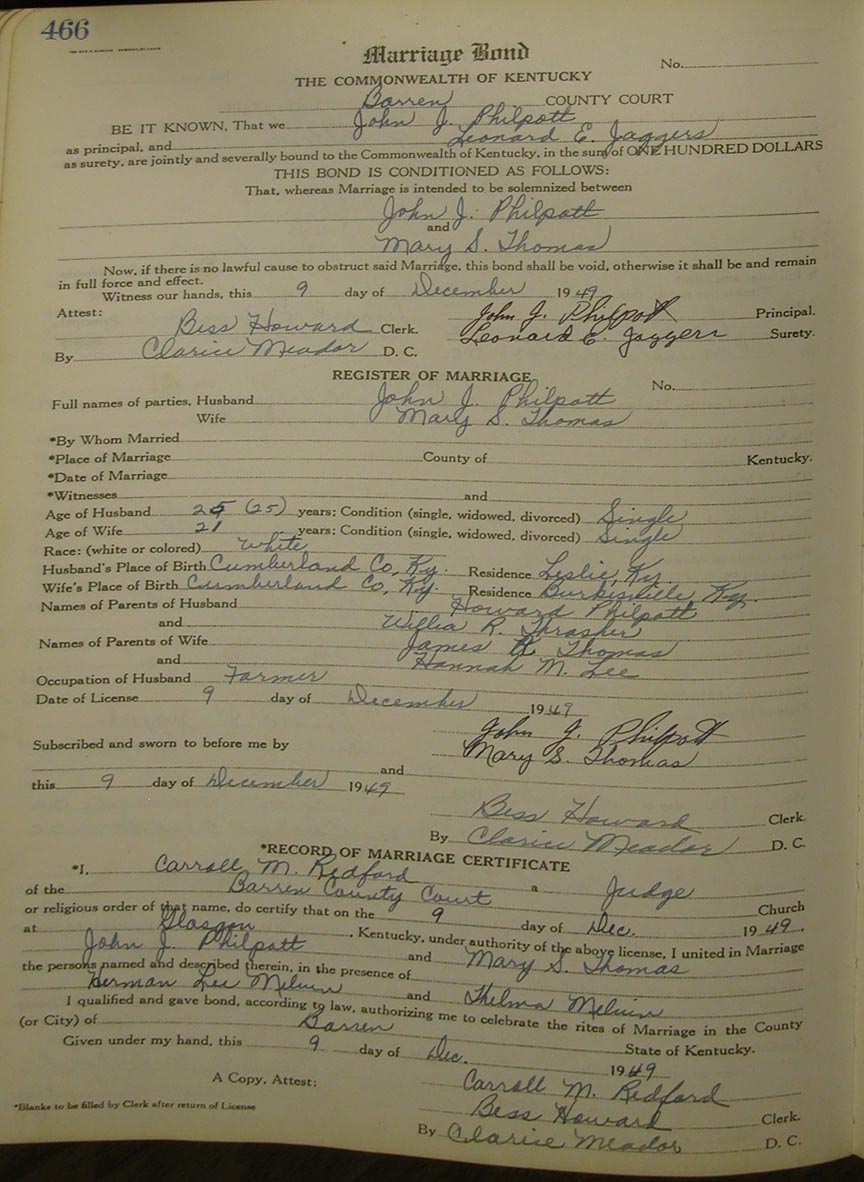 466
Marriage Bond
No.
THE COMMONWEALTH OF KENTUCKY
Barren COUNTY COURT
BE IT KNOWN, That we John J. Philpott
as principal, and Leonard E. Jaggers
as surety, are jointly and severally bound to the Commonwealth of Kentucky, in the sum of ONE HUNDRED DOLLARS
THIS BOND IS CONDITIONED AS FOLLOWS:
That, whereas Marriage is intended to be solemnized between
John J. Philpott
and
Mary S. Thomas
Now, if there is no lawful cause to obstruct said Marriage, this bond shall be void, otherwise it shall be and remain
in full force and effect.
Witness our hands, this 9 day of December 1949
Attest: John J. Philpott Principal.
Bess Howard Clerk. Leonard E. Jaggers Surety.
By Clarice Meador D. C.
REGISTER OF MARRIAGE
No.
Full names of parties, Husband John J. Philpott
Wife Mary S. Thomas
*By Whom Married
*Place of Marriage County of Kentucky.
*Date of Marriage
*Witnesses and
Age of Husband 25 (25) years; Condition (single, widowed, divorced) Single
Age of Wife 21 years; Condition (single, widowed, divorced) Single
Race: (white or colored) White
Husband's Place of Birth Cumberland Co, Ky. Residence Leslie, Ky.
Wife's Place of Birth Cumberland Co, Ky. Residence Burkesville, Ky.
Names of Parents of Husband Howard Philpott
and Willia R. Thrasher
Names of Parents of Wife James Thomas
and Hannah M. Lee
Occupation of Husband Farmer
Date of License 9 day of December 1949
John J. Philpott
Subscribed and sworn to before me by Mary S. Thomas
and
this 9 day of December 1949
Bess Howard Clerk.
By Clarice Meador D. C.
*RECORD OF MARRIAGE CERTIFICATE
*I, Carroll M. Redford a Judge
of the Barren County Court Church
or religious order of that name, do certify that on the 9 day of Dec. 1949.
at Glasgow, Kentucky, under authority of the above license, I united in Marriage
John J. Philpott and Mary S. Thomas
the persons named and described therein, in the presence of
Herman Lee Melvin and Thelma Melvin
I qualified and gave bond, according to law, authorizing me to celebrate the rites of Marriage in the County
(or City) of Barren State of Kentucky.
Given under my hand, this 9 day of Dec. 1949
A Copy, Attest: Carroll M. Redford
*Blanks to be filled by Clerk after return of License
Bess Howard Clerk.
By Clarice Meador D. C.